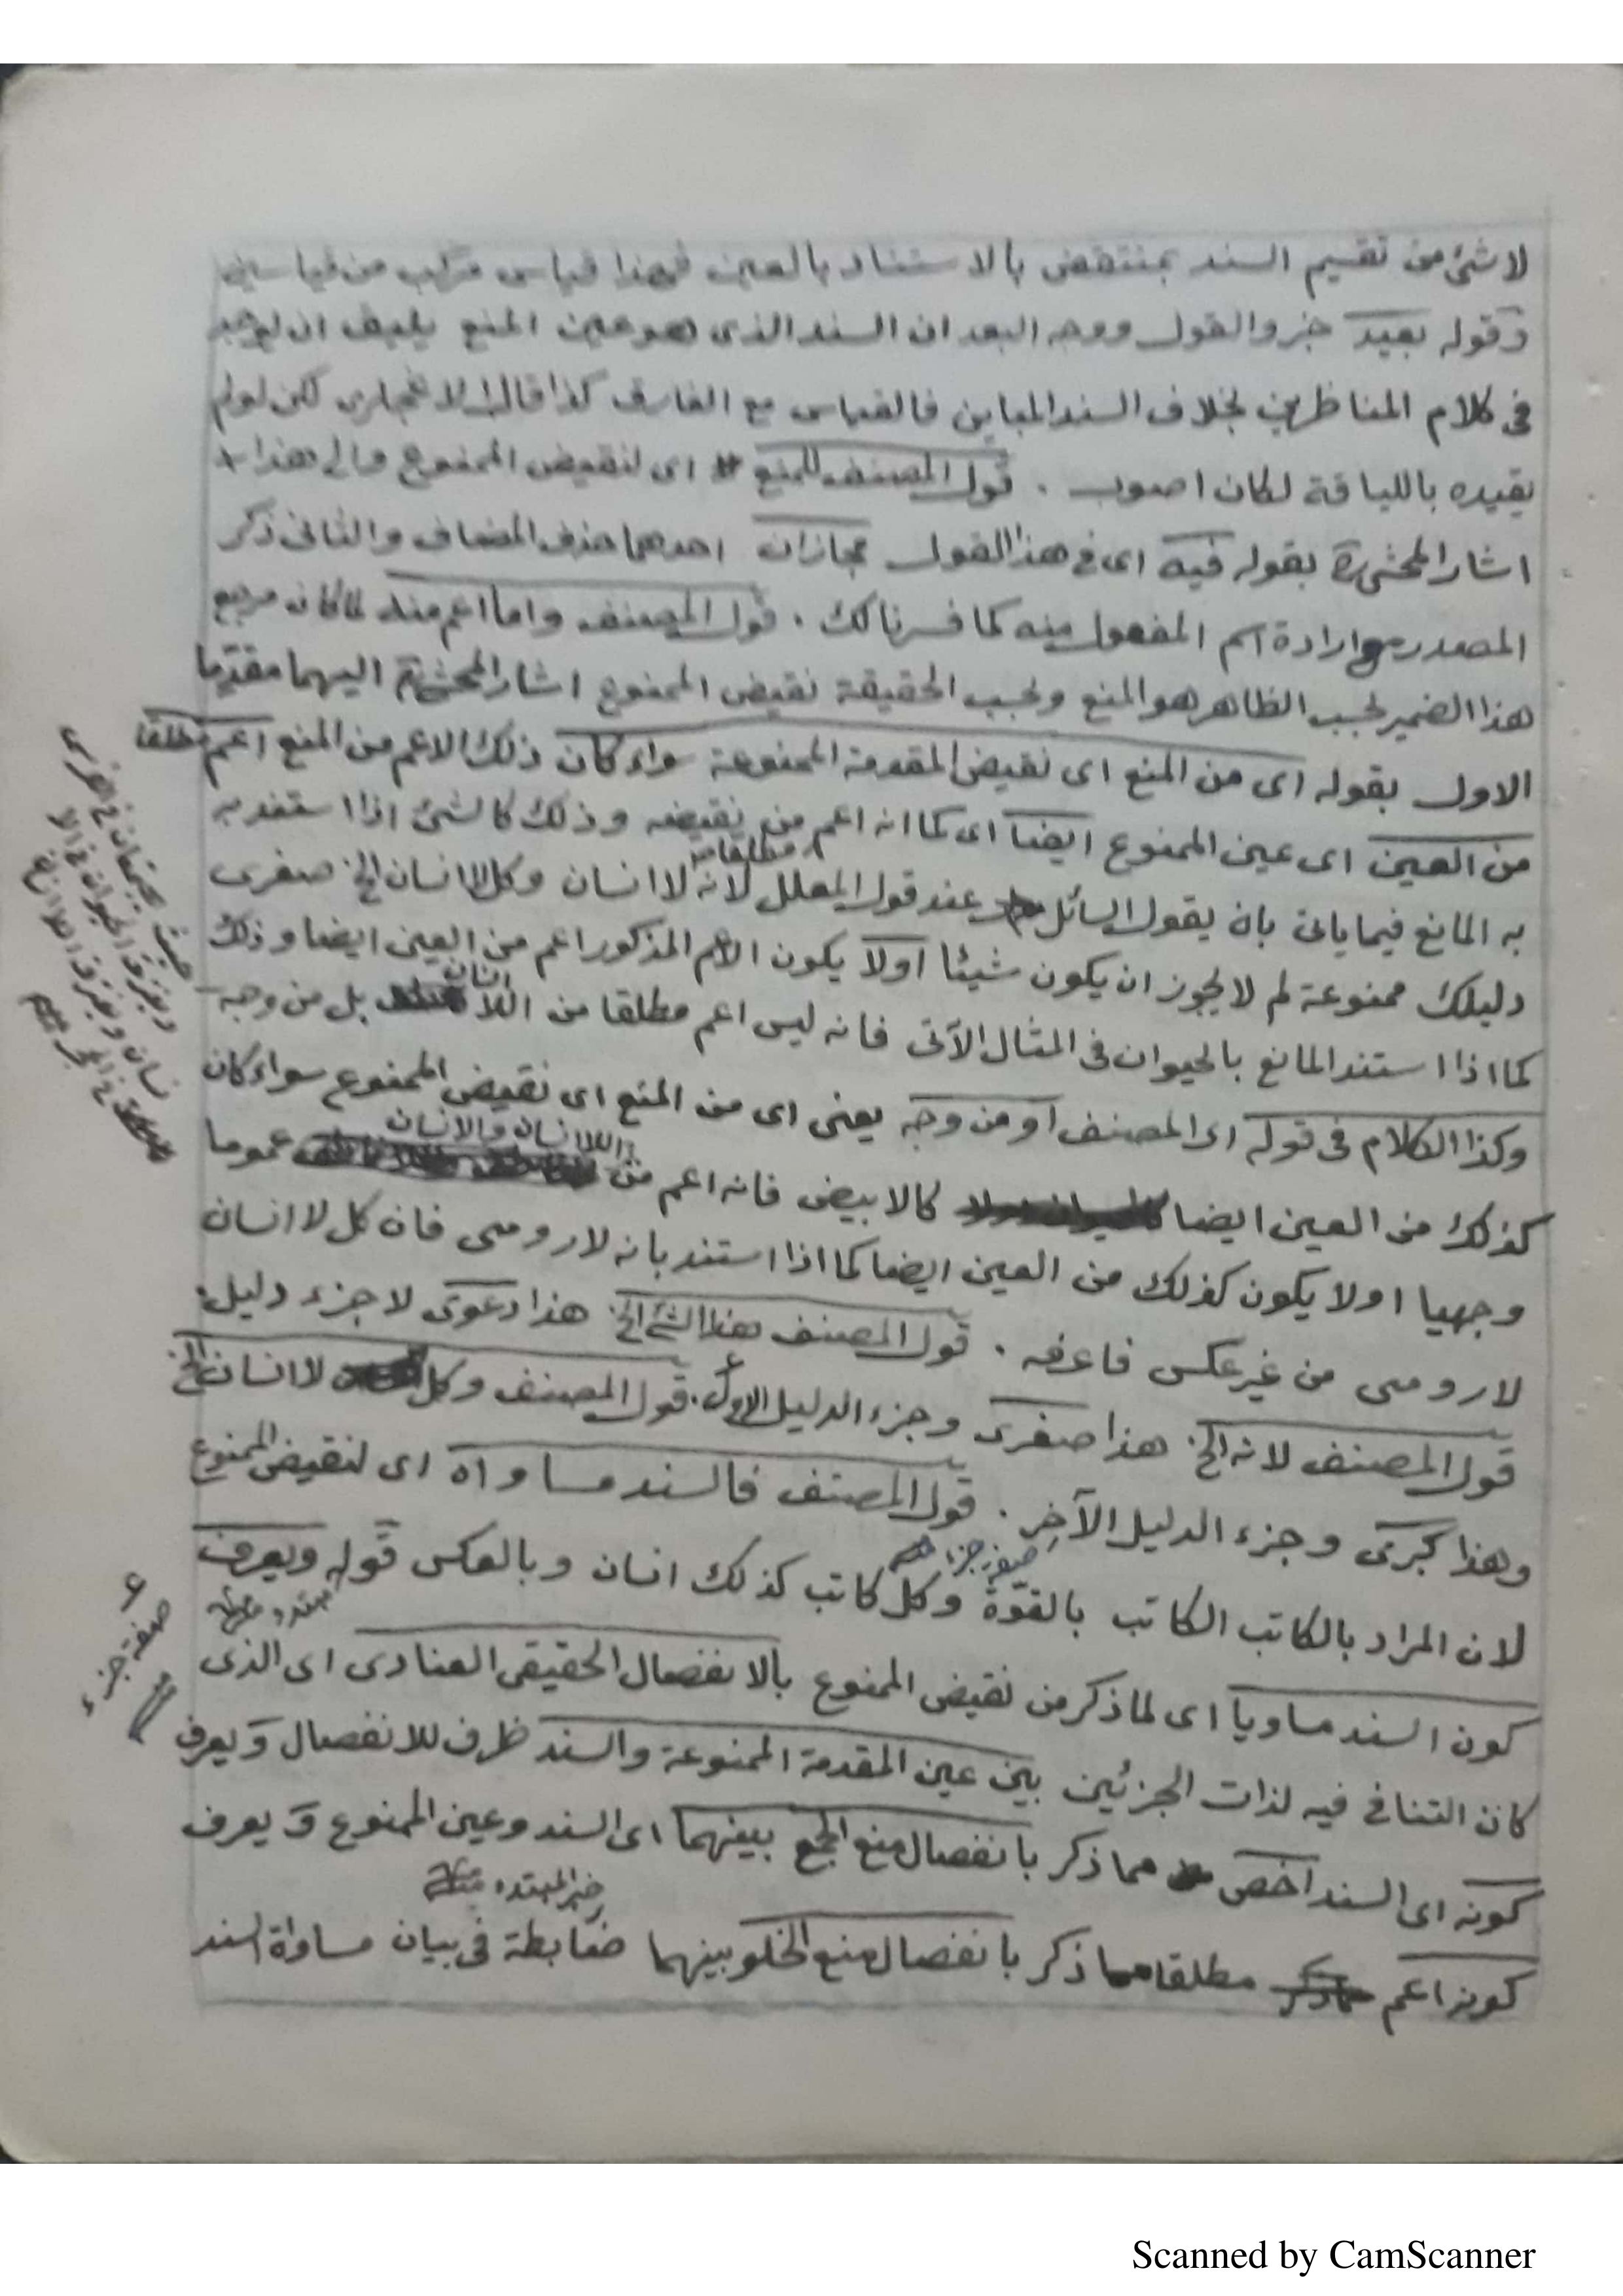 لا شئ من تقسيم السند بمنتقض بالاستناد بالعين فهذا قياس مركب من قياسين
وقوله بعيد خبر والقول ووجه البعد ان السند الذى هو عين المنع يليق ان يوجد
فى كلام المناظرين بخلاف السند المباين فالقياس مع الفارق كذا قال لكن لو لم
يقيده باللياقة لكان اصوب . قول المصنف للمنع اى لنقيض الممنوع والى هذا
اشار المحشى بقوله فيه اى فى هذا القول مجازان احدهما حذف المضاف والثانى ذكر
المصدر مع ارادة اسم المفعول منه كما فسرنا لك . قول المصنف واما اعم منه لما كان مرجع
هذا الضمير بحسب الظاهر هو المنع وبحسب الحقيقة نقيض الممنوع اشار المحشى اليهما مقدّما
الاول بقوله اى من المنع اى نقيض المقدمة الممنوعة سواء كان ذلك الاعم من المنع اعم مطلقا
من العين اى عين الممنوع ايضا اى كما انه اعم من نقيضه وذلك كالشئ اذا استند به
مطلقا
به المانع فيما ياتى بان يقول السائل عند قول المعلل لانه لا انسان وكل لا انسان الخ صغرى
دليلك ممنوعة لم لا يجوز ان يكون شيئا اولا يكون الاعم المذكور اعم من العين ايضا وذلك
انسان
كما اذا استند المانع بالحيوان فى المثال الآتى فانه ليس اعم مطلقا من اللا بل من وجه
وكذا الكلام فى قوله اى المصنف او من وجه يعنى اى من المنع اى نقيض الممنوع سواء كان
اللا انسان والانسان
كذلك من العين ايضا كالابيض فانه اعم من عموما
وجهيا اولا يكون كذلك من العين ايضا كما اذا استند بانه لا رومى فان كل لا انسان
لا رومى من غير عكس فاعرفه . قول المصنف هذا الشئ الخ هذا دعوى لا جزء دليل
قول المصنف لانه الخ هذا صغرى وجزء الدليل الاول . قول المصنف وكل لا انسان الخ
وهذا كبرى وجزء الدليل الآخر . قول المصنف فالسند مساواه اى لنقيض الممنوع
صفة جزء
لان المراد بالكاتب الكاتب بالقوّة وكل كاتب كذلك انسان وبالعكس قوله ويعرف
مبتدء
كون السند مساويا اى لما ذكر من نقيض الممنوع بالانفصال الحقيقى العنادى اى الذى
كان التنافى فيه لذات الجزئين بين عين المقدمة الممنوعة والسند ظرف للانفصال ويعرف
كونه اى السند اخص مما ذكر بانفصال منع الجمع بينهما اى السند وعين الممنوع ويعرف
خبر المبتدء
كونه اعم مطلقا مما ذكر بانفصال منع الخلو بينهما ضابطة فى بيان مساواة السند
حيث يجتمعان فى الفرس
ويفترق الحيوان فى الا
نسان ويفترق اللا انسان
فى الحجر
صفة جزء
Scanned by CamScanner